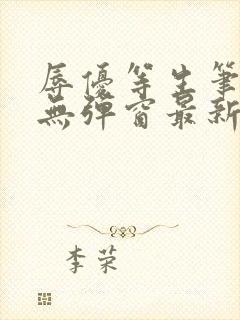 辱優等生筆
無彈窗最新
李荣